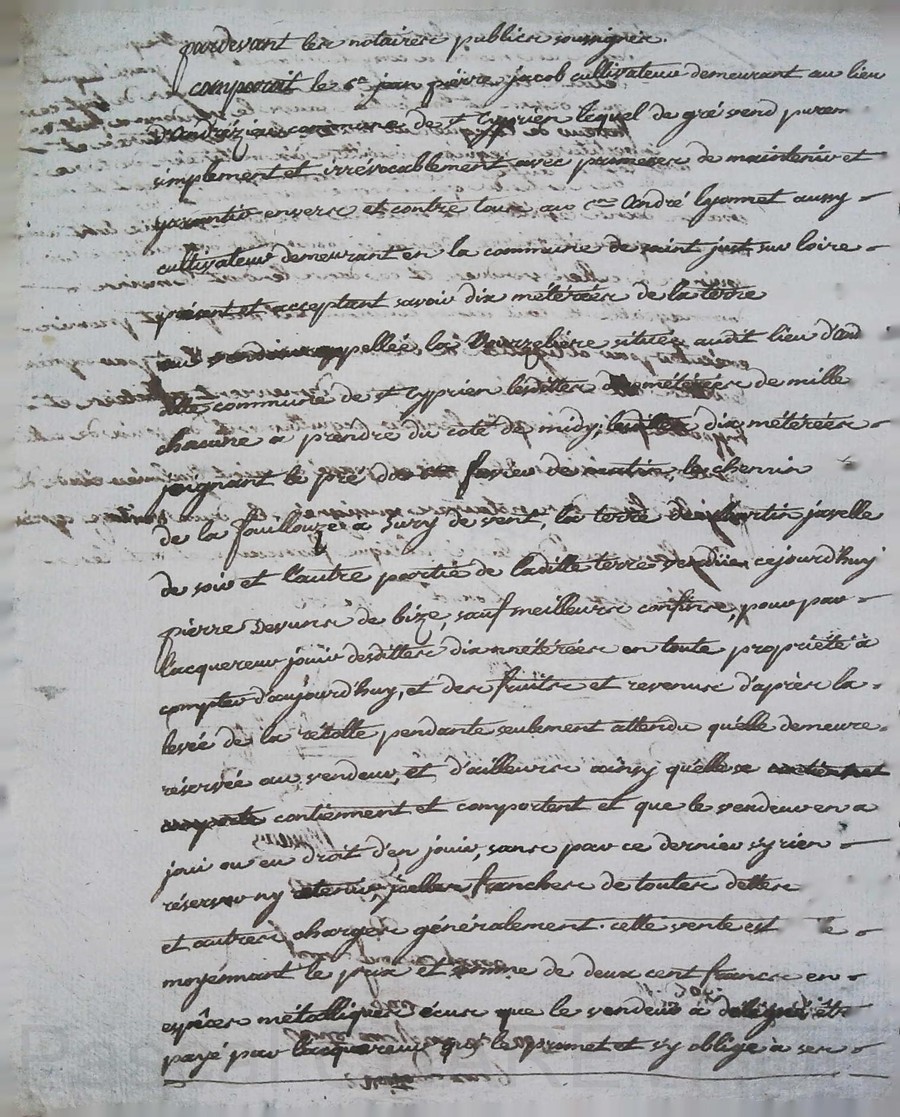 pardevant les notaires publics soussignés.
comparait le c.en jean pierre jacob cultivateur demeurant au lieu
d'andrézieu commune de st Cyprien lequel de gré vend purem
simplement et irrévocablement avec promesse de maintenir et
garantir envers et contre tous au c.en André lyonnet aussy
cultivateur demeurant en la commune de saint just sur loire
présent et acceptant savoir dix métérées de la terre
appellée la située audit lieu d'and
ditte commune de st Cyprien lesdittes métérées de mille
chacune a prendre du coté de midy; lesdittes dix métérées
joignant le pré de matin, le chemin
de la fouillouze a sury de vent, la terre de martin javelle
de soir et l'autre partie de laditte terre vendüe cejourd'huy
pierre de bize, sauf meilleurs confins, pour par
l'acquereur jouir desdittes dix métérées en toute propriété à
compter d'aujourd'huy, et des fruits et revenus d'après la
levée de la récolte pendante seulement attendu qu'elle demeure
réservée au vendeur, et d'ailleurs ainsy qu'elles
contiennent et comportent et que le vendeur en a
joui ou eu droit d'en jouir, sans par ce dernier s'y rien
réserver ny retenir, icelles franches de toutes dettes
et autres charges généralement. cette vente est
moyennant le prix et somme de deux cent francs en
espèces métalliques écus que le vendeur a être
payé par lacquereur qui le promet et s'y oblige à ses